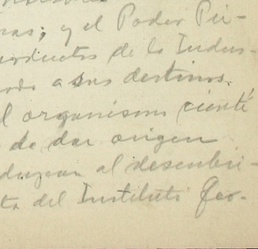 ras; y el Poder Pú-
roductos de la Indus-
a sus destinos.
l organismo cientí
de dar origen
al descubri-
ta del Instituto Geo-